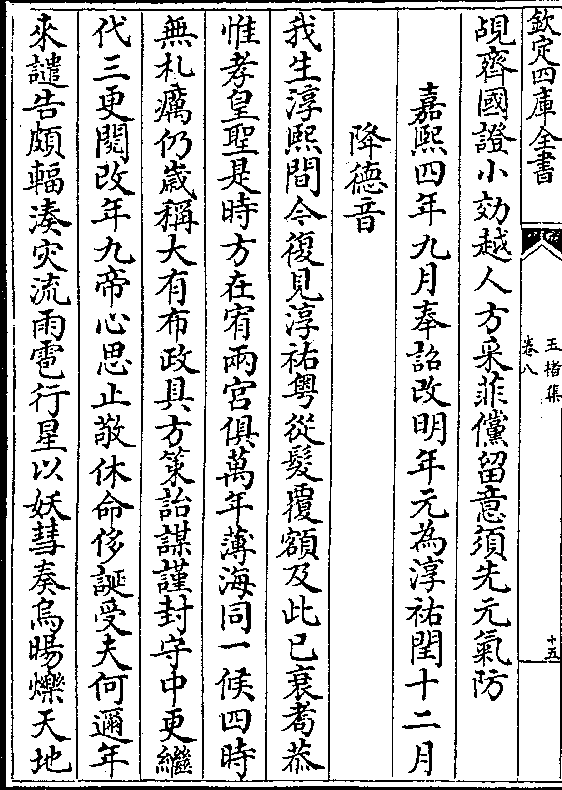 欽定四庫全書
玉楮集
卷八
十五
覘齊國證小効越人方采菲儻留意須先元氣防
嘉熙四年九月奉詔改明年元為淳祐閏十二月
降德音
我生淳熙間今復見淳祐粤從髮覆額及此已衰耈恭
惟孝皇聖是時方在宥兩宫俱萬年薄海同一候四時
無札癘仍嵗稱大有布政具方策詒謀謹封守中更繼
代三更閱改年九帝心思止敬休命侈誕受夫何邇年
來譴告頗輻湊灾流雨雹行星以妖彗奏烏暘爍天地